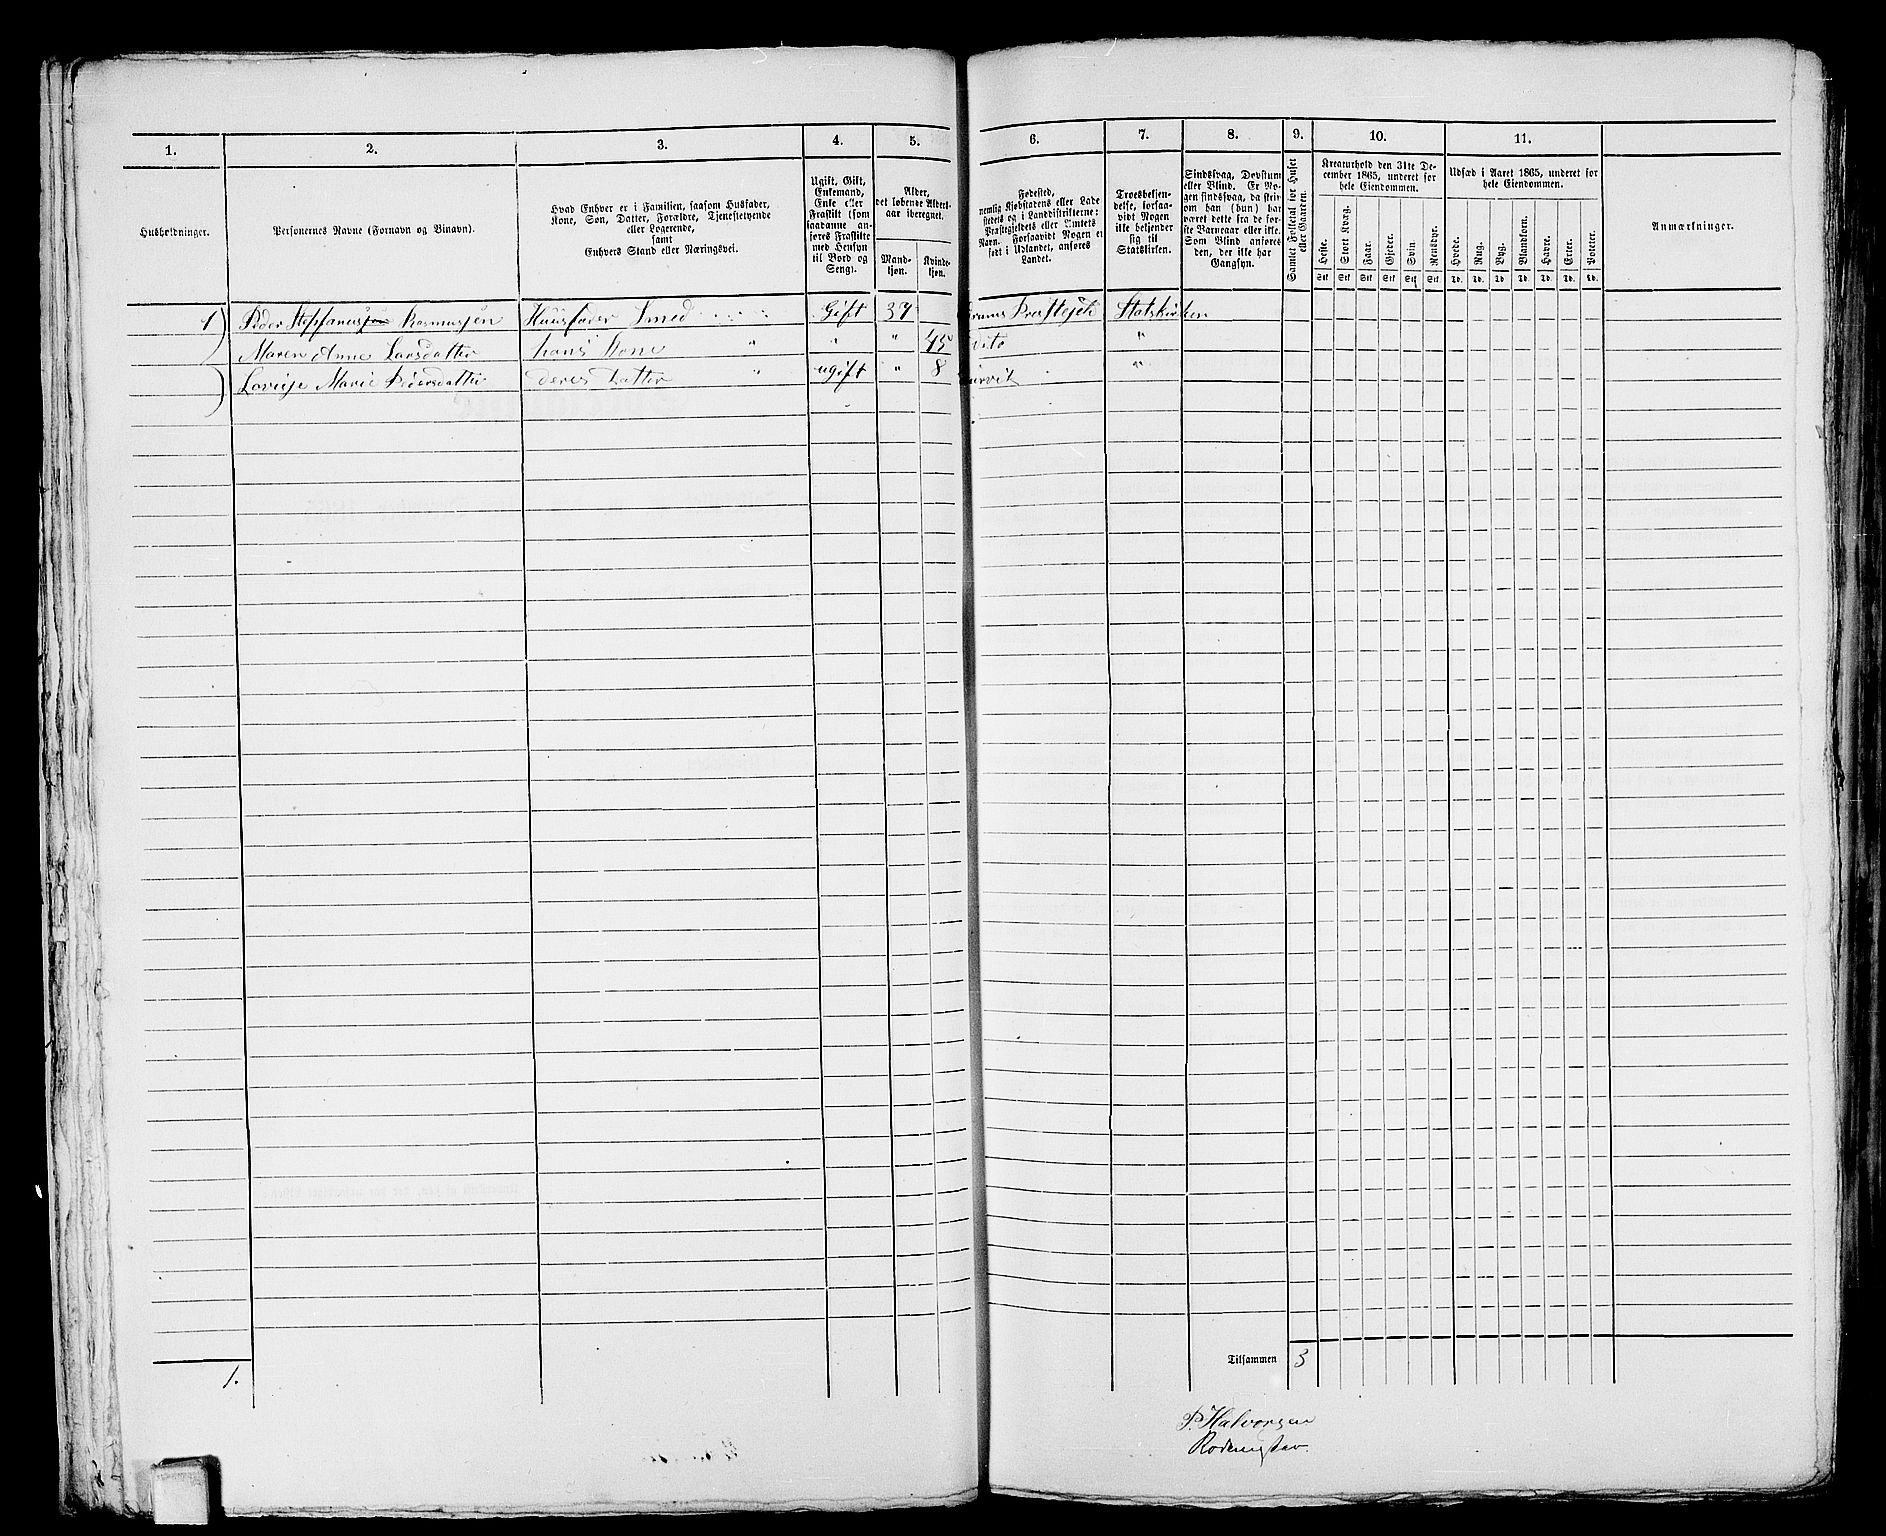 1. 2. 3. 4. 5. 6. 7. 8. 9. 10. 11.
Husholdninger.
Personernes Navne (Fornavn og Binavn).
Hvad Enhver er i Familien, saasom Husfader,
Kone, Søn, Datter, Forældre, Tjenestetyende
eller Logerende,
samt
Enhvers Stand eller Næringsvei.
Ugift, Gift,
Enkemand,
Enke eller
Fraskilt (som
saadanne an-
føres Fraskilte
med Hensyn
til Bord og
Seng).
Alder,
det løbende Alders-
aar iberegnet.
Mand-
kjøn.
Kvinde-
kjøn.
Fødested,
nemlig Kjøbstadens eller Lade
stedets og i Landdistrikterne:
Præstegjeldets eller Amtets
Navn. Forsaavidt Nogen er
født i Udlandet, anføres
Landet.
Troesbekjen-
delse, forsaa-
vidt Nogen
ikke bekjender
sig til
Statskirken.
Sindssvag, Døvstum
eller Blind. Er No-
gen sindssvag, da skri-
ves om han (hun) har
været dette fra de før-
ste Barneaar eller ikke.
Som Blind anføres
den, der ikke har
Gangsyn.
Samlet Folketal for Huset
eller Gaarden.
Kreaturhold den 31te De-
cember 1865, underet for
hele Eiendommen.
Heste. Stort Kvæg. Faar. Gjeder. Svin. Rensdyr.
Stk Stk Stk Stk Stk Stk
Udsæd i Aaret 1865, underet for
hele Eiendommen.
Hvede. Rug. Byg. Blandkorn. Havre. Erter. Poteter.
Td. Td. Td. Td. Td. Td. Td.
Anmærkninger.
1 Peder Stephanusjen Rasmusjen Huusfader Smed Gift 37 Præstegjeld Statskirken
Maren Anne Larsdatter hans Kone " " " 45 dito "
Lovisje Marie Pedersdatter deres Datter " ugift " 8 "
1.
Tilsammen 3
P. Halvorsen
Rodemester.